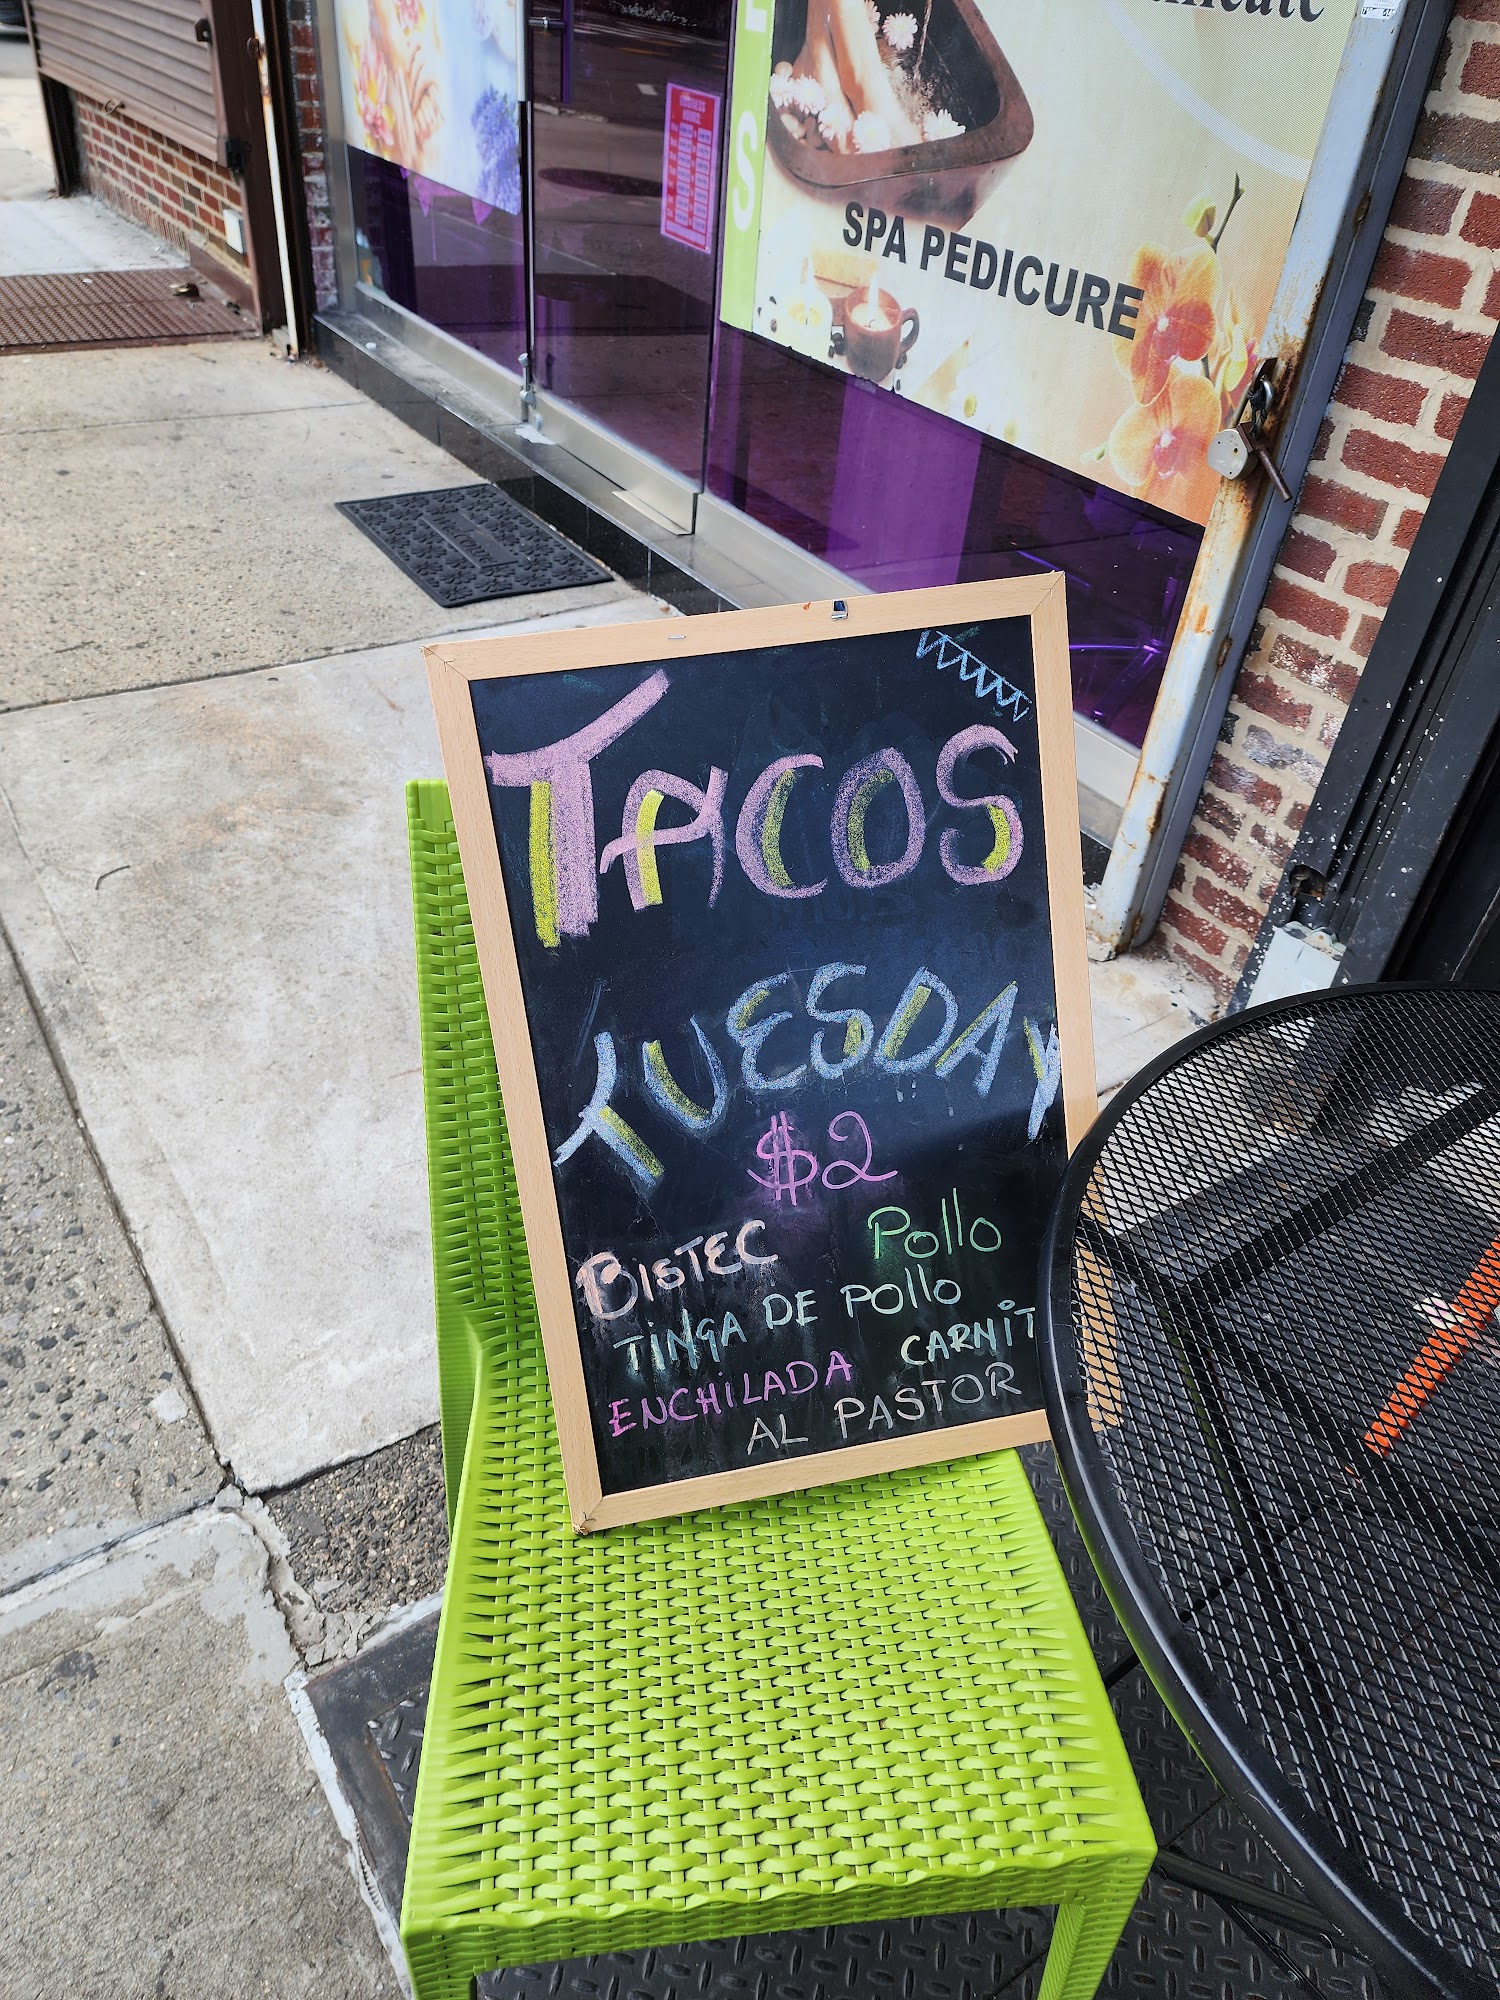 SPA PEDICURE
TACOS
TUESDAY
$2
BISTEC Pollo
TINGA DE POllO
CARNIT
ENCHILADA
AL PASTOR